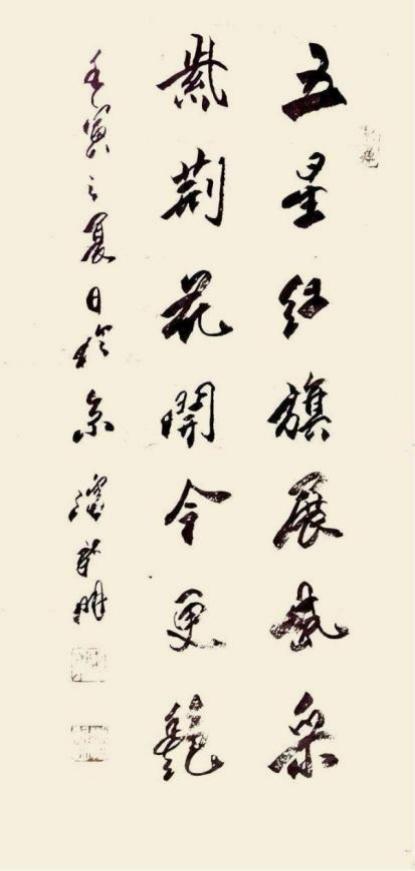 五星红旗展风采
紫荆花開今更艳
壬寅之夏日於京